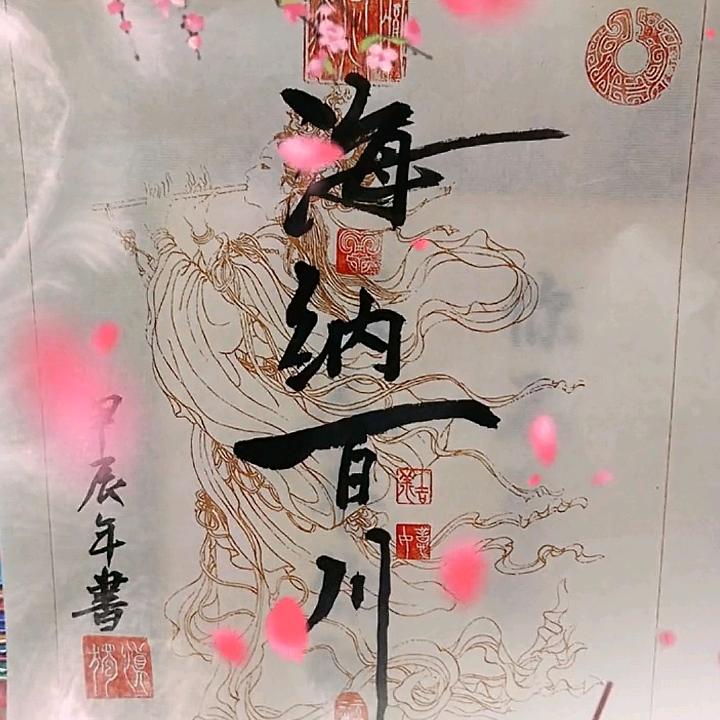 海纳百川
甲辰年書